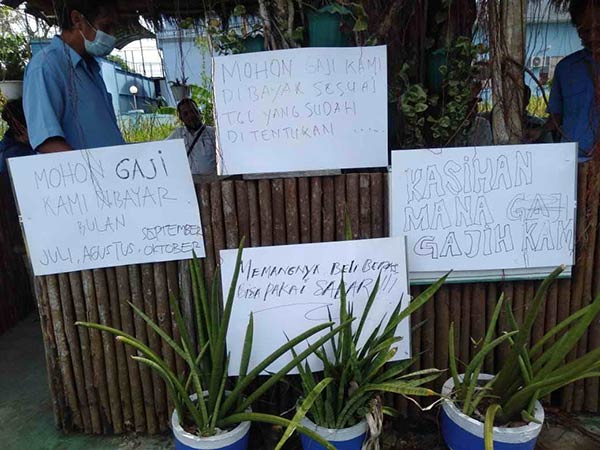 MOHON GAJI KAMI
DI BAYAR SESUAI
TGL YANG SUDAH
DI TENTUKAN .....
MOHON GAJI
KAMI DIBAYAR
BULAN SEPTEMBER
JULI, AGUSTUS, OKTOBER
KASIHAN
MANA GAJI
GAJIH KAMI
MEMANGNYA BELI BERAS
BISA PAKAI SABAR!!!